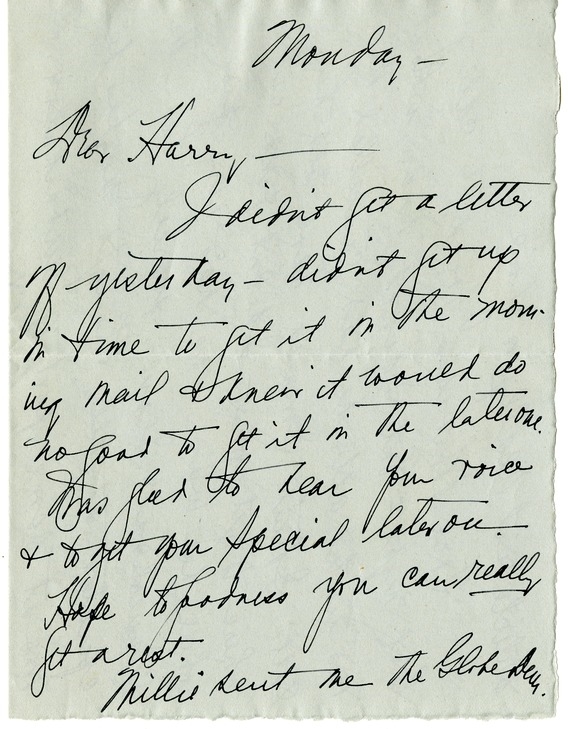 Monday –
Dear Harry, —
I didn't get a letter
off yesterday – didn't get up
in time to get it in the morn-
ing mail & knew it would do
no good to get it in the later one.
Was glad to hear your voice
& to get your Special later on.
Hope to goodness you can really
get a rest.
Millie sent me the Globe Dem.